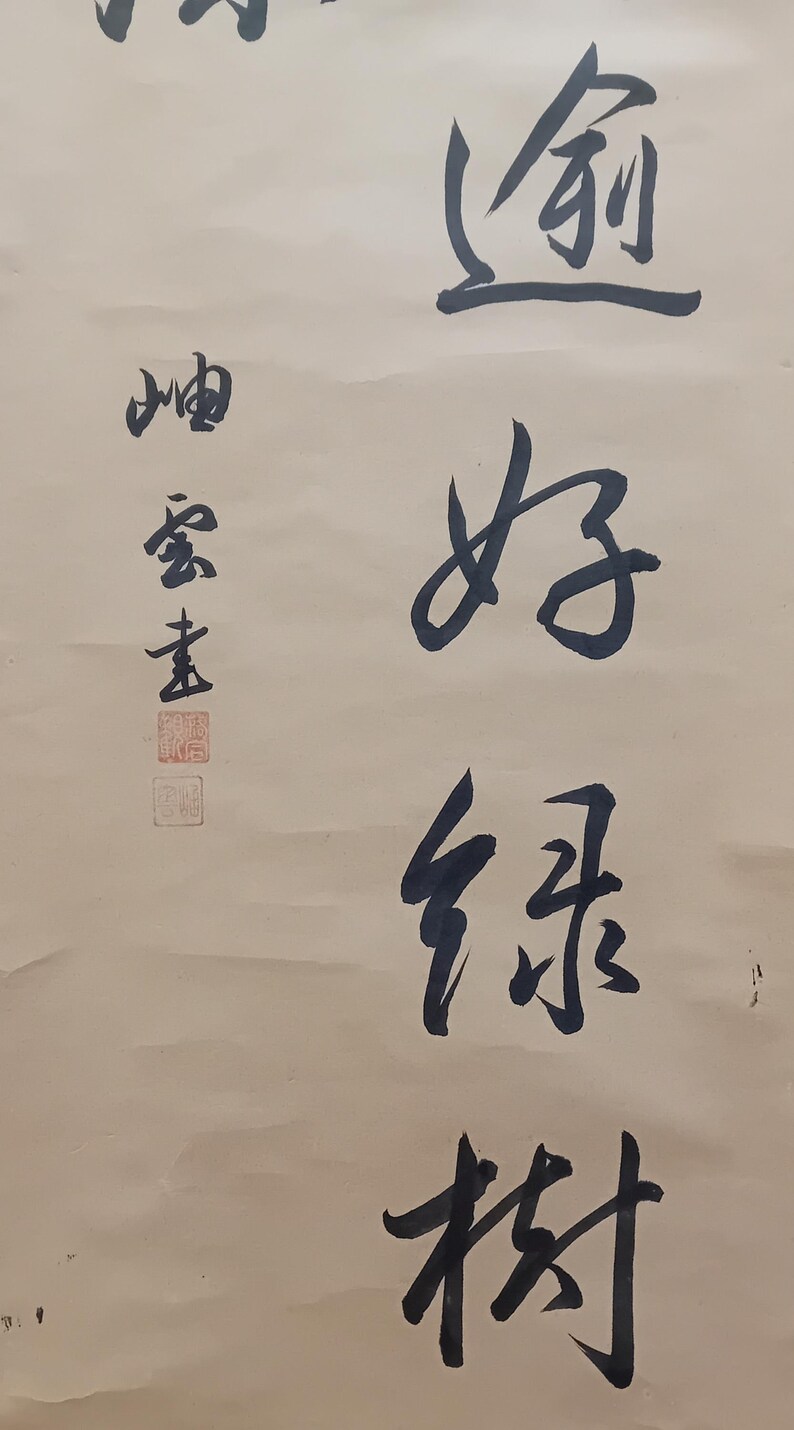 逾好綠樹
岫雲書